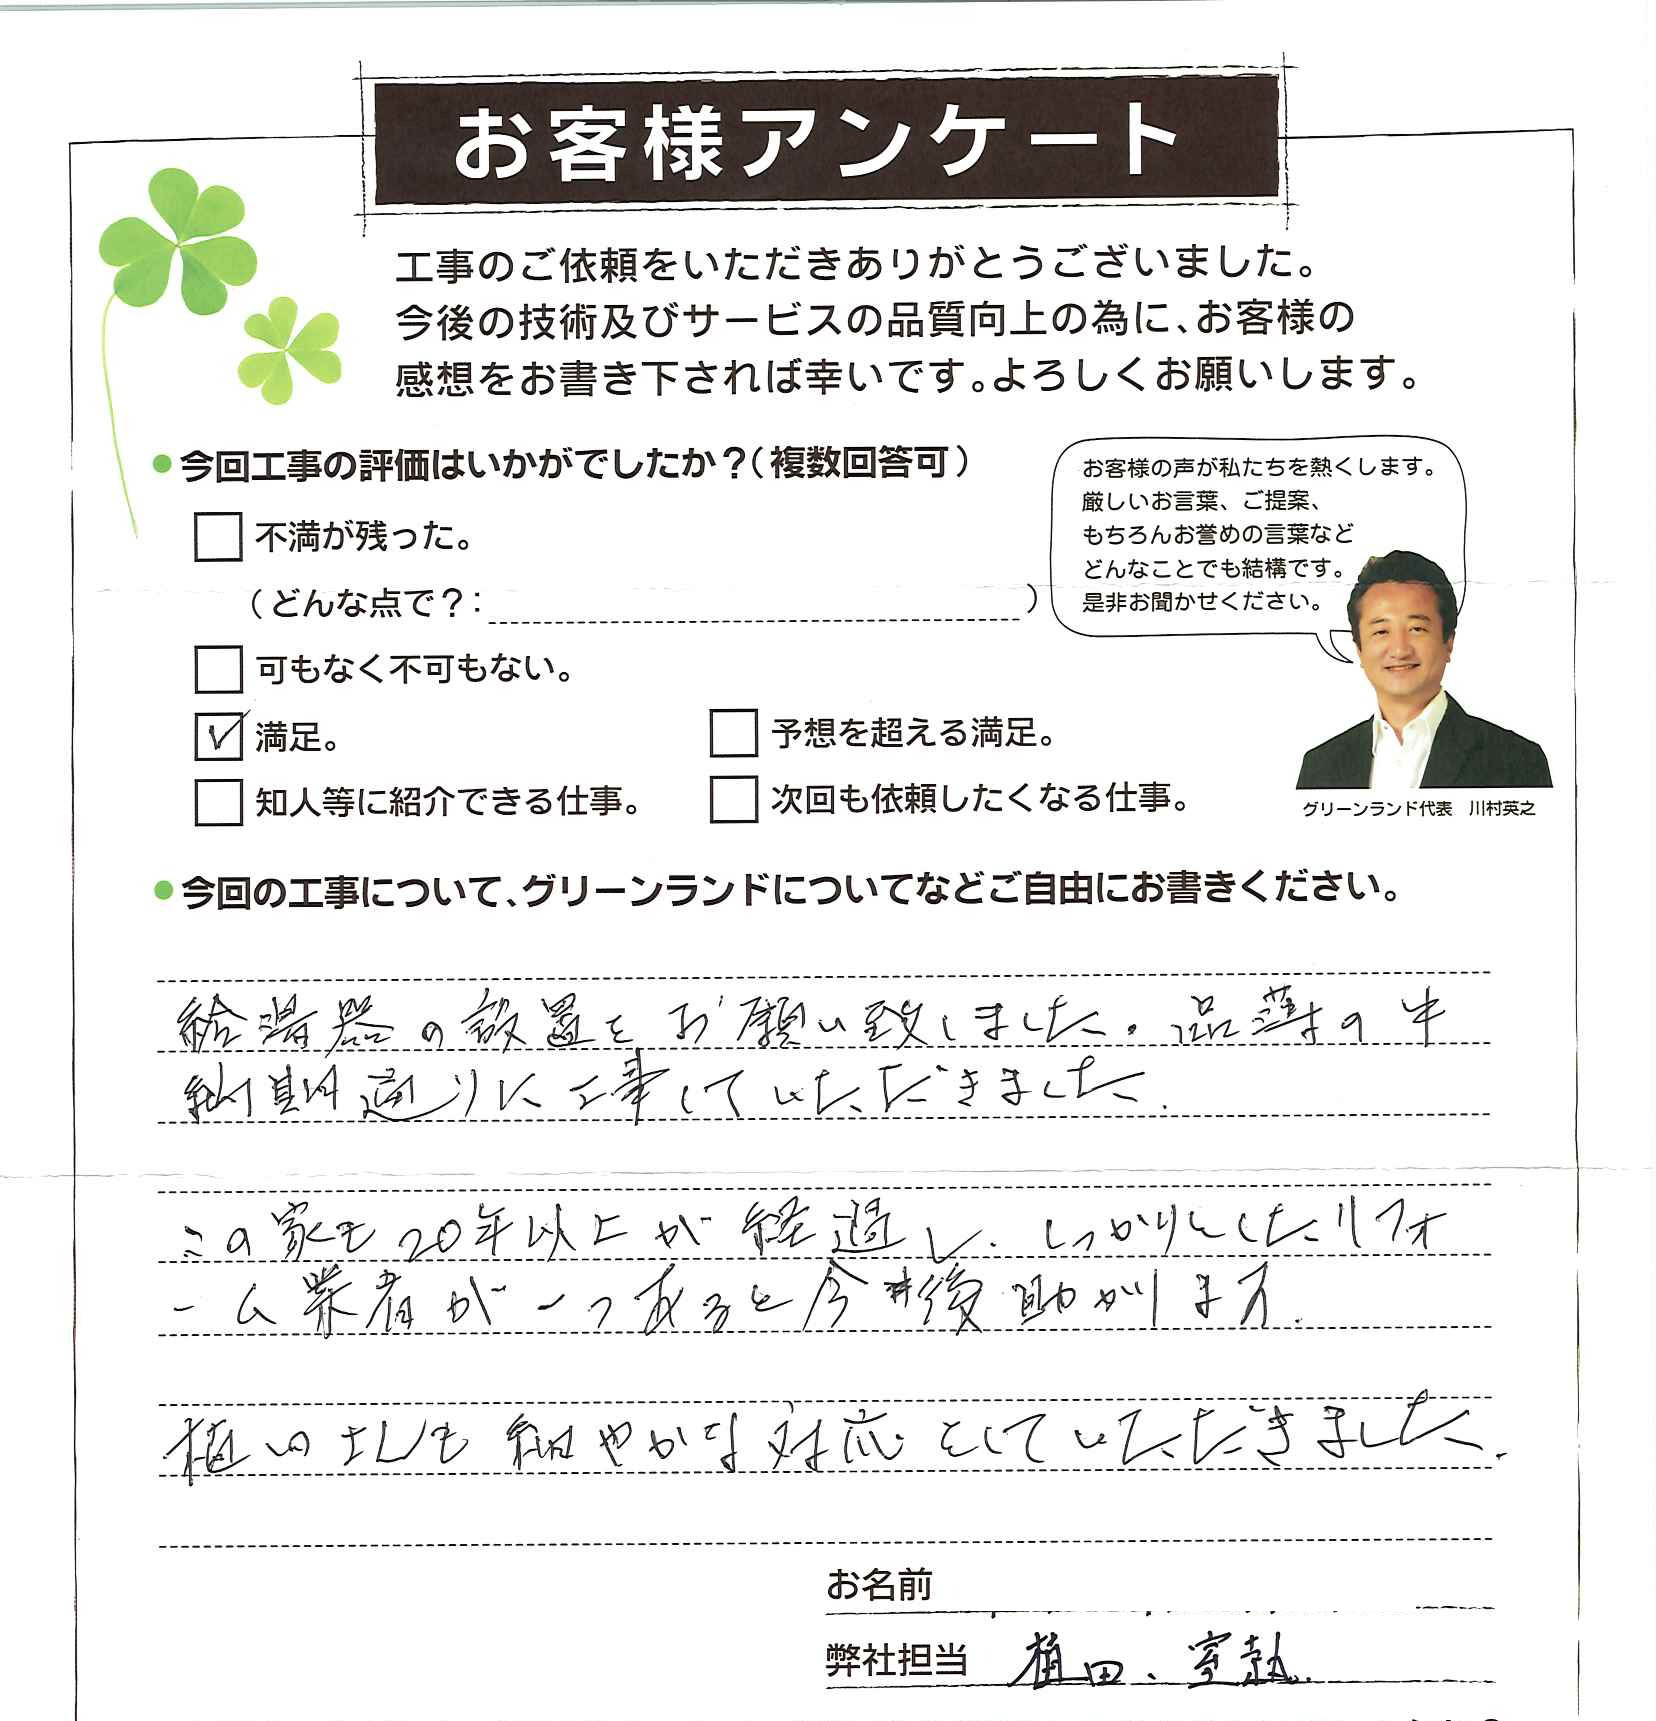 お客様アンケート
工事のご依頼をいただきありがとうございました。
今後の技術及びサービスの品質向上の為に、お客様の
感想をお書き下されば幸いです。よろしくお願いします。
●今回工事の評価はいかがでしたか？（複数回答可）
不満が残った。
（どんな点で？：　　　）
可もなく不可もない。
満足。
予想を超える満足。
知人等に紹介できる仕事。
次回も依頼したくなる仕事。
お客様の声が私たちを熱くします。
厳しいお言葉、ご提案、
もちろんお誉めの言葉など
どんなことでも結構です。
是非お聞かせください。
グリーンランド代表　川村英之
●今回の工事について、グリーンランドについてなどご自由にお書きください。
給湯器の設置をお願い致しました。品薄の中
納期通りに工事していただきました.
この家も20年以上が経過し、しっかりとしたリフォ
ーム業者が一つあると今後助かります.
植田さんも細やかな対応をしていただきました.
お名前
弊社担当　植田、室